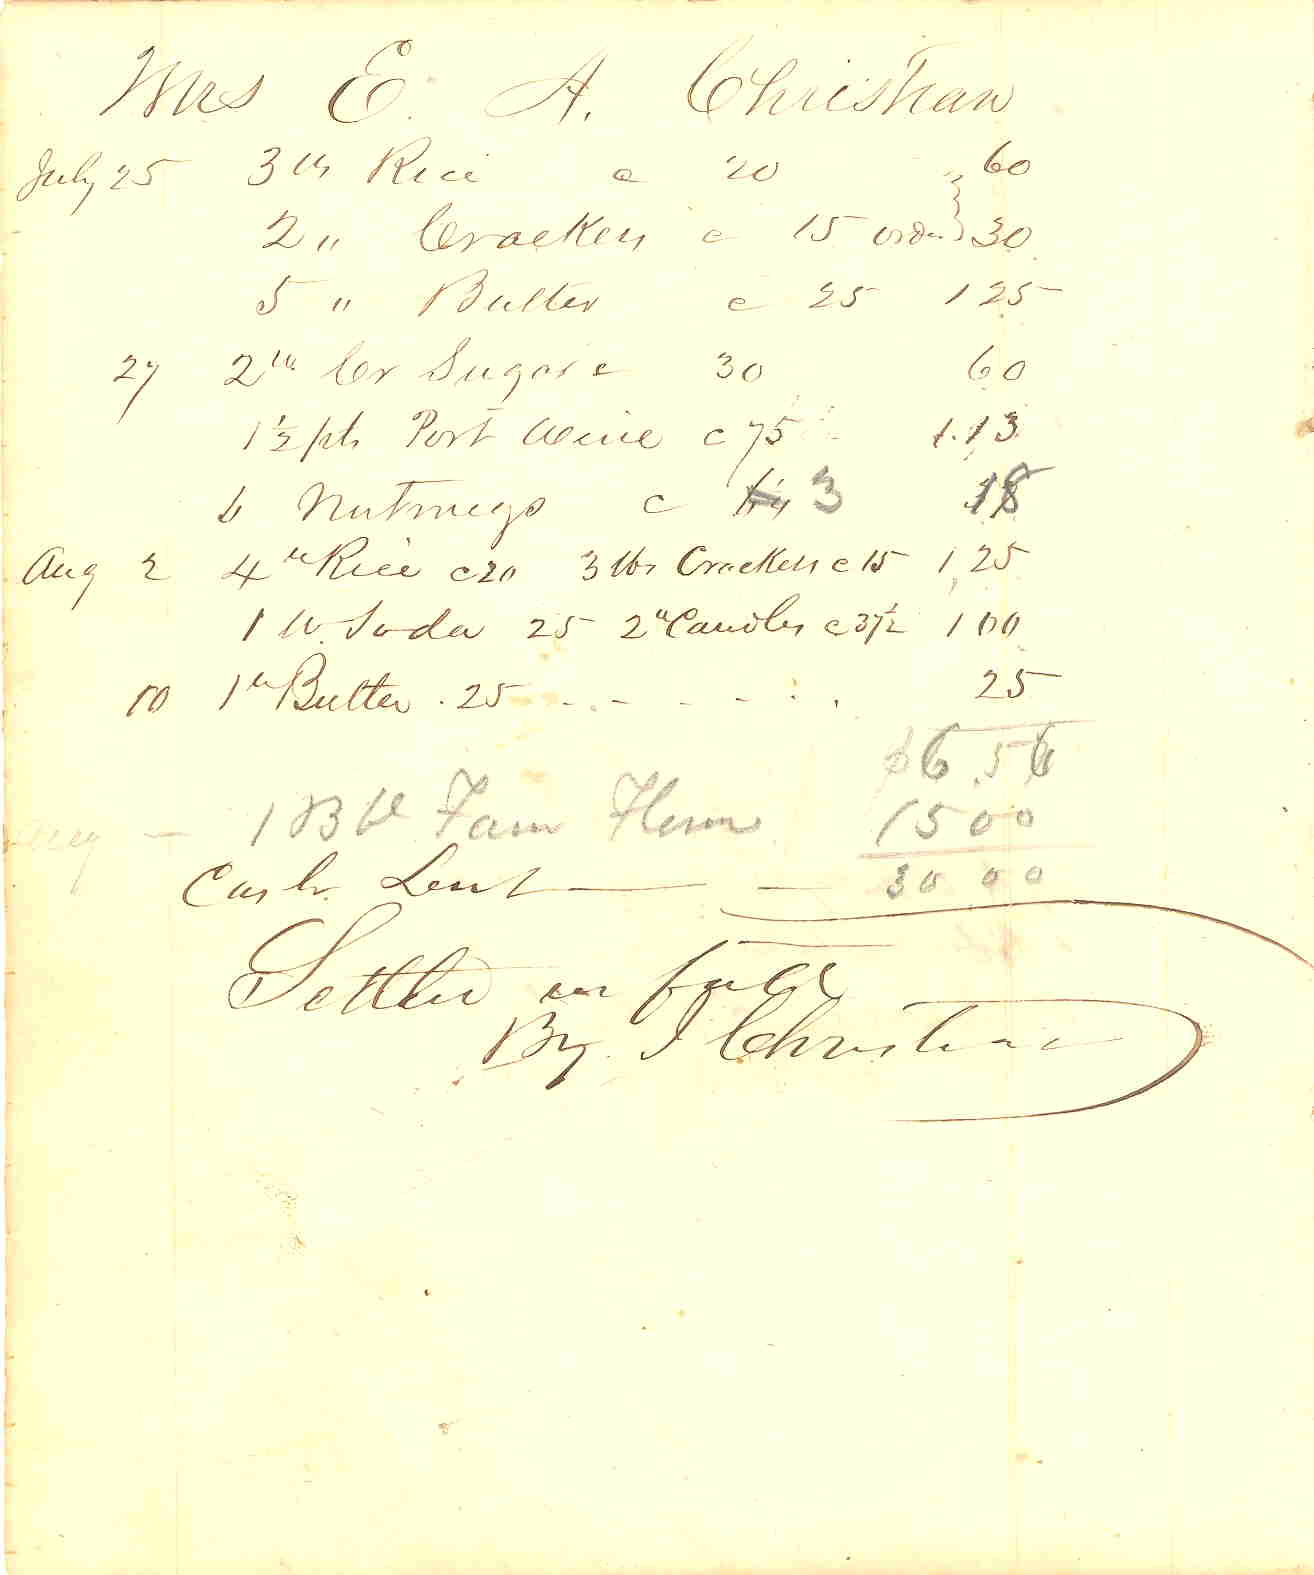 Mrs E. A. Christian
July 25 3 lbs Rice c 20 " 60
2 " Crackers c 15 order 30
5 " Butter c 25 1 25
27 2 lbs Cr Sugar c 30 60
1½ pts Port Wine c 75 1.13
6 Nutmegs c 3 18
Aug 2 4 " Rice c 20 3 lbs Crackers c 15 1,25
1 lb. Soda 25 2 " Candles c 37½ 1 00
10 1 " Butter . 25 - - - - - - 25
$6.56
Aug — 1 Bbl Fam Flour 15 00
Cash. Lent — — 30 00
Settled in full
By. J Christian